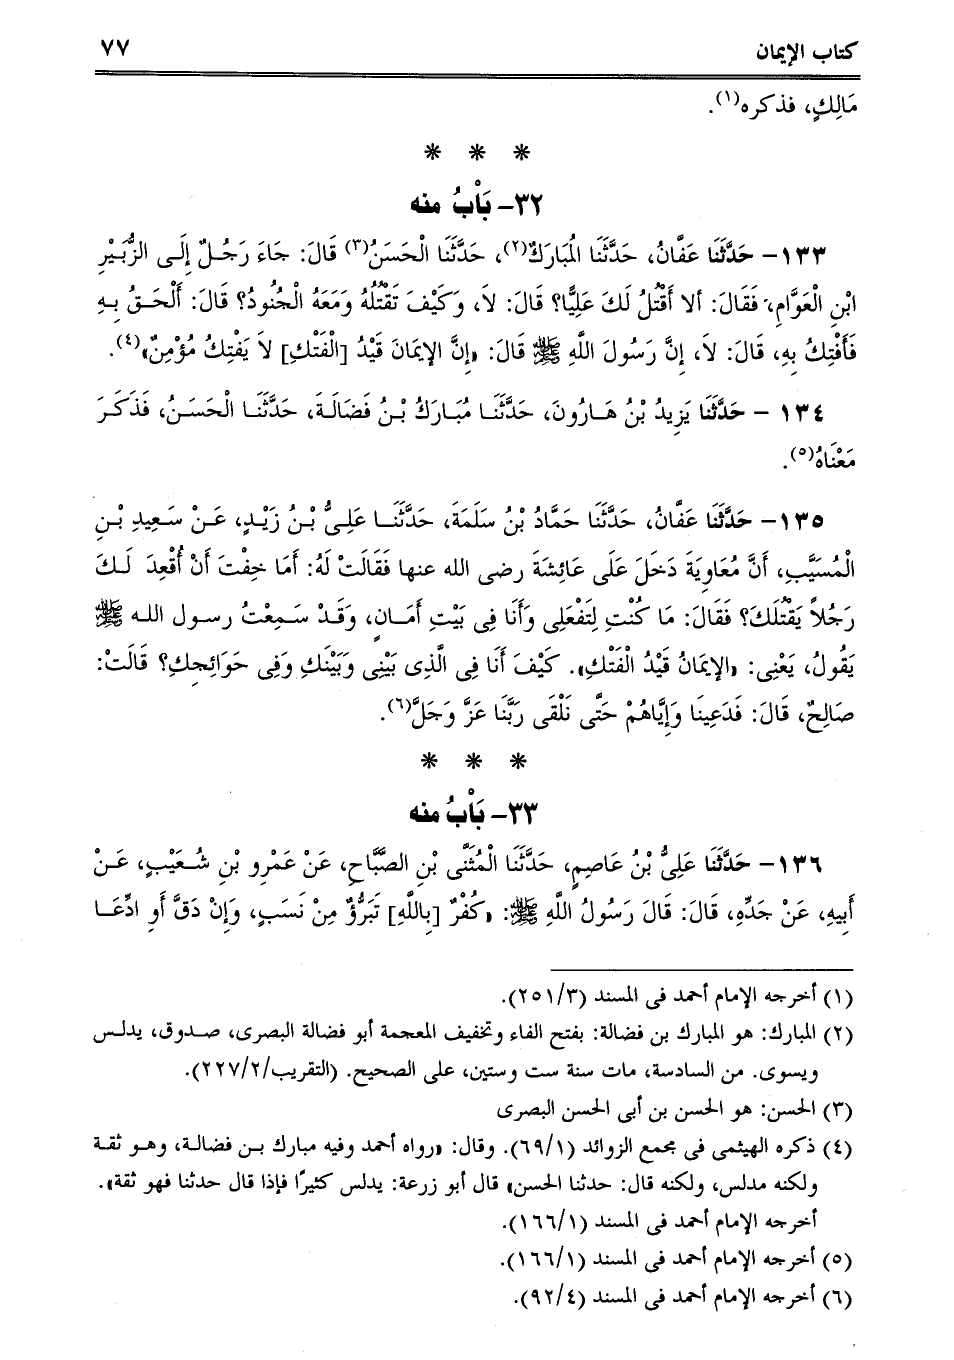 كتاب الإيمان ٧٧
مَالِكٍ، فذكره(١).
* * *
٣٢- بَابُ منه
١٣٣- حَدَّثَنَا عَفَّانُ، حَدَّثَنَا الْمُبَارَكُ(٢)، حَدَّثَنَا الْحَسَنُ(٣) قَالَ: جَاءَ رَجُلٌ إِلَى الزُّبَيْرِ
ابْنِ الْعَوَّامِ، فَقَالَ: أَلا أَقْتُلُ لَكَ عَلِيًّا؟ قَالَ: لاَ، وَكَيْفَ تَقْتُلُهُ وَمَعَهُ الْجُنُودُ؟ قَالَ: أَلْحَقُ بِهِ
فَأَفْتِكُ بِهِ، قَالَ: لاَ، إِنَّ رَسُولَ اللَّهِ ﷺ قَالَ: «إِنَّ الإِيمَانَ قَيْدُ [الْفَتْكِ] لاَ يَفْتِكُ مُؤْمِنٌ»(٤).
١٣٤ - حَدَّثَنَا يَزِيدُ بْنُ هَارُونَ، حَدَّثَنَا مُبَارَكُ بْنُ فَضَالَةَ، حَدَّثَنَا الْحَسَنُ، فَذَكَرَ
مَعْنَاهُ(٥).
١٣٥- حَدَّثَنَا عَفَّانُ، حَدَّثَنَا حَمَّادُ بْنُ سَلَمَةَ، حَدَّثَنَا عَلِىُّ بْنُ زَيْدٍ، عَنْ سَعِيدِ بْنِ
الْمُسَيَّبِ، أَنَّ مُعَاوِيَةَ دَخَلَ عَلَى عَائِشَةَ رضى الله عنها فَقَالَتْ لَهُ: أَمَا خِفْتَ أَنْ أُقْعِدَ لَكَ
رَجُلاً يَقْتُلَكَ؟ فَقَالَ: مَا كُنْتِ لِتَفْعَلِى وَأَنَا فِى بَيْتِ أَمَانٍ، وَقَدْ سَمِعْتُ رسول الله ﷺ
يَقُولُ، يَعْنِى: «الإِيمَانُ قَيْدُ الْفَتْكِ». كَيْفَ أَنَا فِى الَّذِى بَيْنِى وَبَيْنَكِ وَفِى حَوَائِجِكِ؟ قَالَتْ:
صَالِحٌ، قَالَ: فَدَعِينَا وَإِيَّاهُمْ حَتَّى نَلْقَى رَبَّنَا عَزَّ وَجَلَّ(٦).
* * *
٣٣- بَابُ منه
١٣٦- حَدَّثَنَا عَلِىُّ بْنُ عَاصِمٍ، حَدَّثَنَا الْمُثَنَّى بْنِ الصَّبَّاحِ، عَنْ عَمْرِو بْنِ شُعَيْبٍ، عَنْ
أَبِيهِ، عَنْ جَدِّهِ، قَالَ: قَالَ رَسُولُ اللَّهِ ﷺ: «كُفْرٌ [بِاللَّهِ] تَبَرُّؤٌ مِنْ نَسَبٍ، وَإِنْ دَقَّ أَوِ ادِّعَا
(١) أخرجه الإمام أحمد فى المسند (٢٥١/٣).
(٢) المبارك: هو المبارك بن فضالة: بفتح الفاء وتخفيف المعجمة أبو فضالة البصرى، صدوق، يدلس
ويسوى. من السادسة، مات سنة ست وستين، على الصحيح. (التقريب/٢٢٧/٢).
(٣) الحسن: هو الحسن بن أبى الحسن البصرى
(٤) ذكره الهيثمى فى مجمع الزوائد (٦٩/١). وقال: «رواه أحمد وفيه مبارك بن فضالة، وهو ثقة
ولكنه مدلس، ولكنه قال: حدثنا الحسن» قال أبو زرعة: يدلس كثيرًا فإذا قال حدثنا فهو ثقة».
أخرجه الإمام أحمد فى المسند (١٦٦/١).
(٥) أخرجه الإمام أحمد فى المسند (١٦٦/١).
(٦) أخرجه الإمام أحمد فى المسند (٩٢/٤).